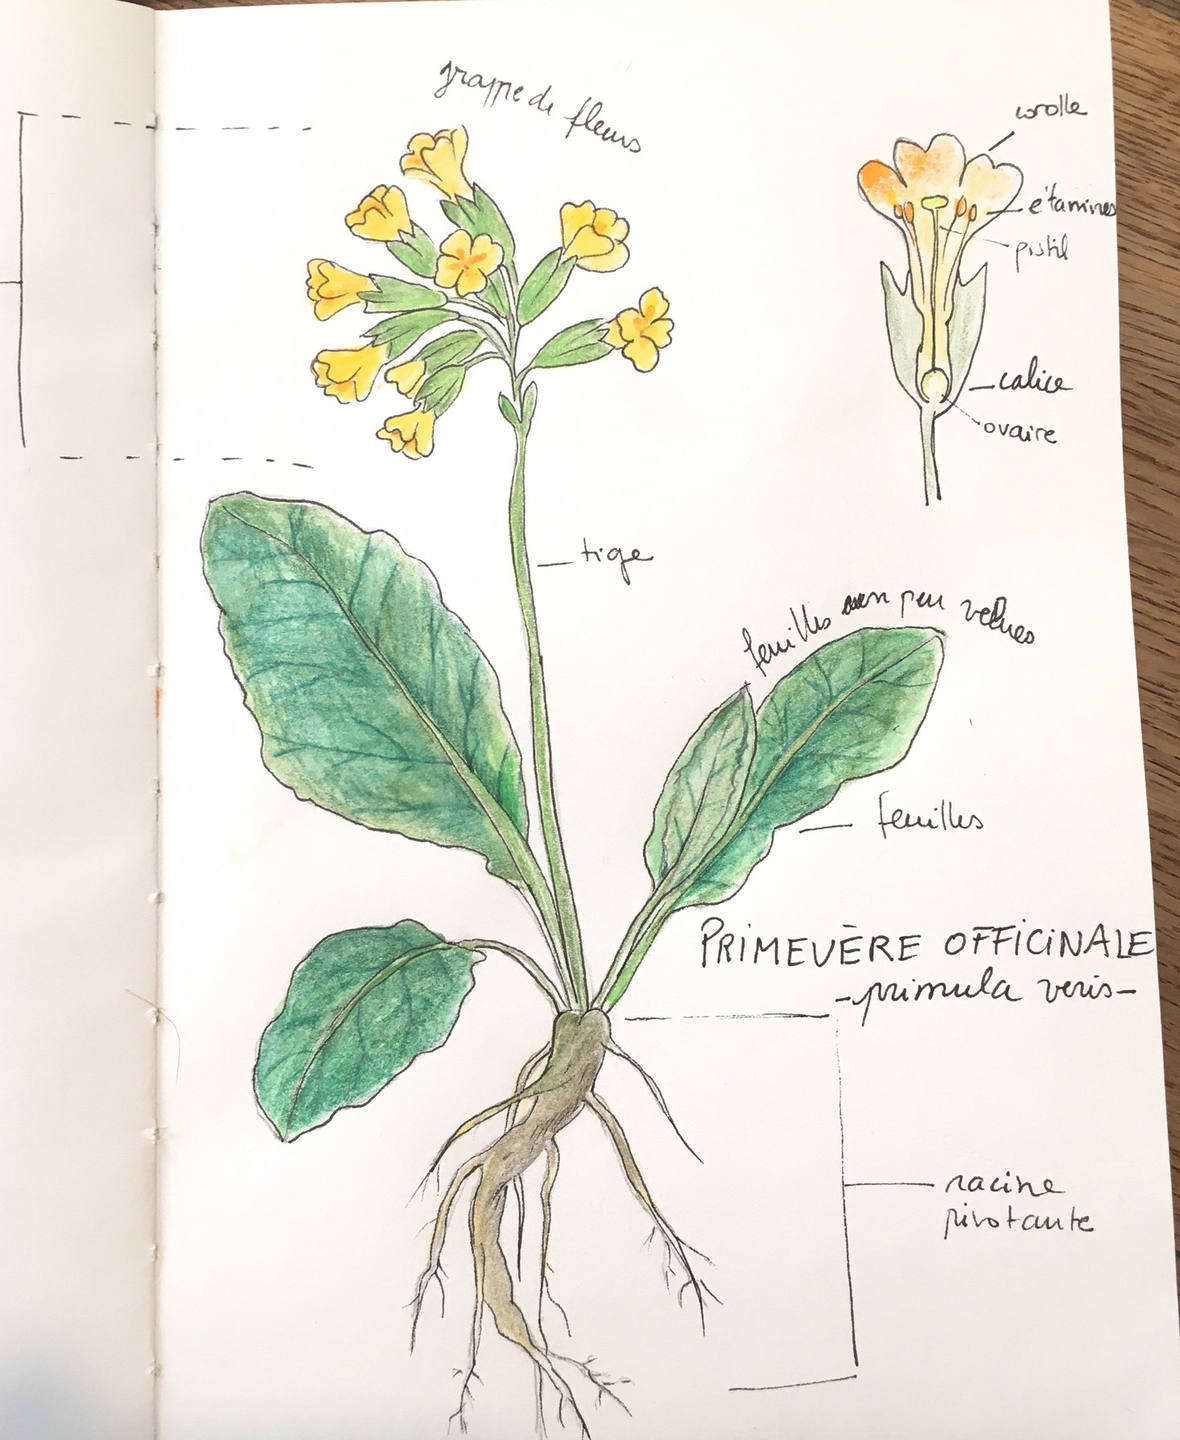 grappe de fleurs
corolle
étamines
pistil
calice
ovaire
tige
feuilles un peu velues
feuilles
PRIMEVÈRE OFFICINALE
-primula veris-
racine
pivotante